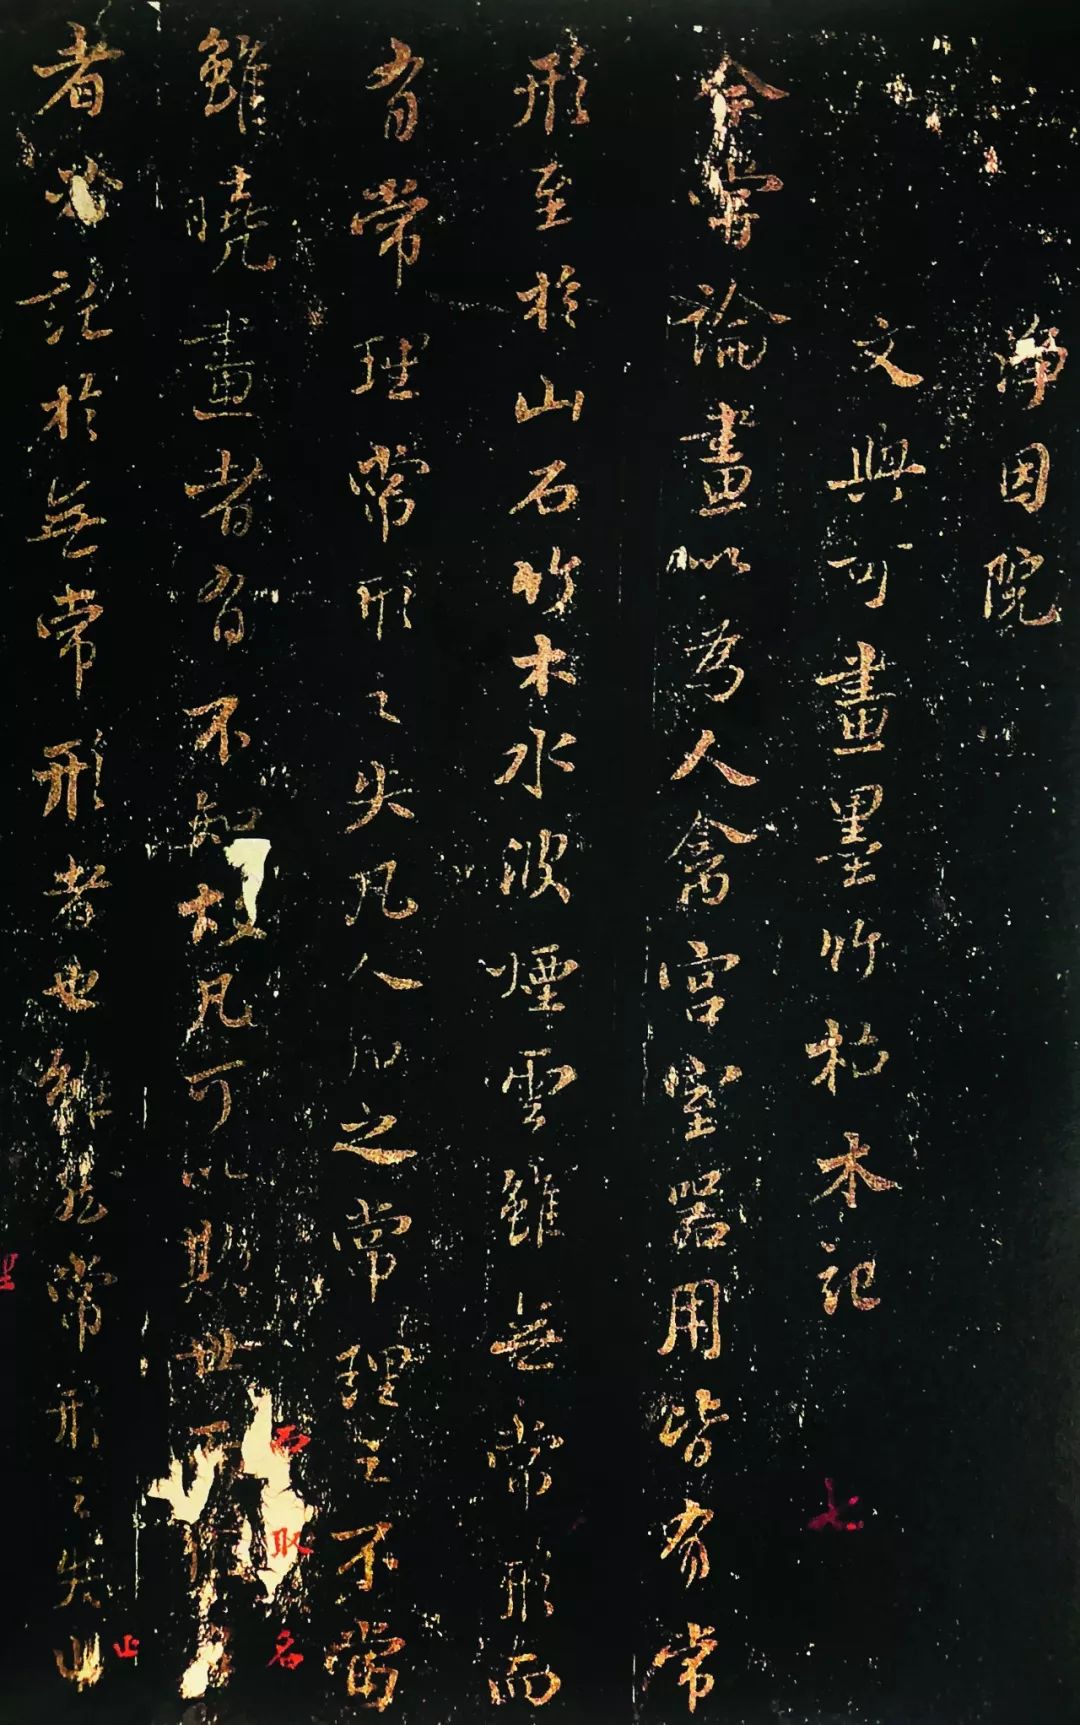 淨因院
文與可畫墨竹枯木記
七
余嘗論畫以為人禽宮室器用皆有常
形至於山石竹木水波煙雲雖無常形而
有常理常形之失凡人知之常理之不當
雖曉畫者有不知故凡可以欺世而取名
而取名
者必託於無常形者也雖然常形之失止
止